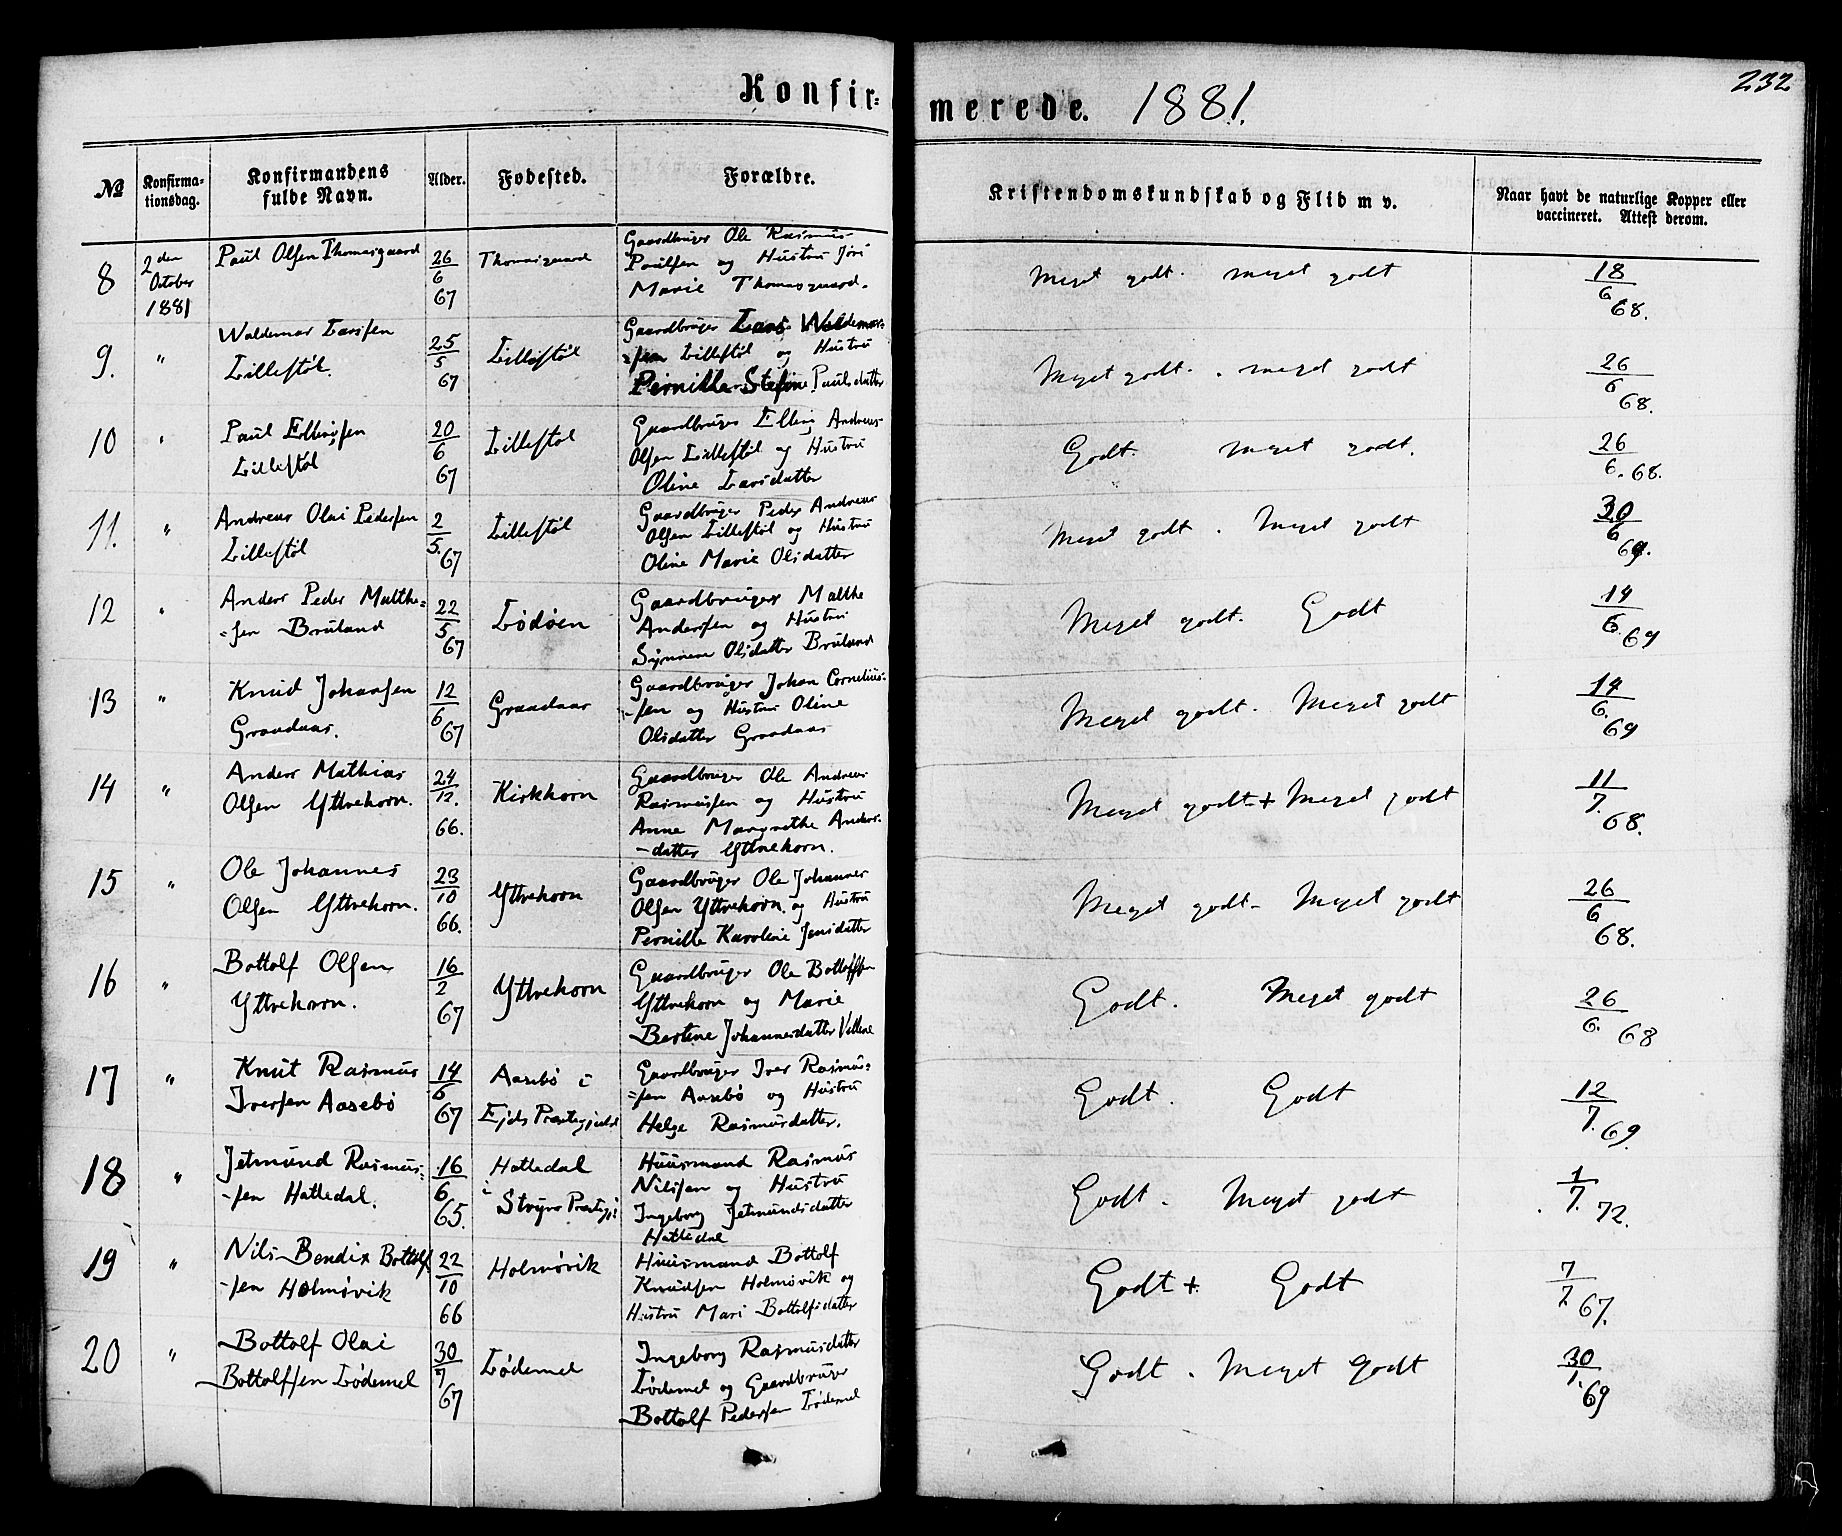 232
Konfir=
merede. 1881.
№ Konfirma-tionsdag. Konfirmandens fulde Navn. Alder. Fødested. Forældre. Kristendomskundskab og Flid m v. Naar havt de naturlige Kopper eller vaccineret. Attest derom.
8 2den October 1881 Paul Olsen Thomasgaard 26/6 67 Thomasgaard
Gaardbruger Ole Rasmus-
Paulsen og Hustru Jøri
Marie Thomasgaard.
Meget godt. meget godt 18/6 68.
9. " Waldemar Larssen
Lillestøl. 25/5 67 Lillestøl
Gaardbruger Lars Waldemar-
=sen Lillestøl og Hustru
Pernille Stefine Paulsdatter
Meget godt. . meget godt 26/6 68.
10 " Paul Ellingsen
Lillestøl 20/6 67 Lillestøl
Gaardbruger Elling Andreas-
Olsen Lillestøl og Hustru
Oline Larsdatter
Godt. meget godt. 26/6. 68.
11. " Andreas Olai Pedersen
Lillestøl 2/5. 67 Lillestøl
Gaardbruger Peder Andreas
Olsen Lillestøl og Hustru
Oline Marie Olsdatter
Meget godt. Meget godt 30/6 69.
12 " Anders Peder Malthe=
=sen Bruland 22/5 67 Lødøen
Gaardbruger Malthe
Andersen og Hustru
Synneve Olsdatter Bruland
Meget godt. Godt 14/6. 69
13 " Knud Johansen
Graadaas. 12/6 67 Graadaas
Gaardbruger Johan Cornelius-
-sen og Hustru Oline
Olsdatter Graadaas
Meget godt. Meget godt 14/6. 69
14 " Anders Mathias
Olsen Yttrehorn. 24/12. 66. Kirkhorn
Gaardbruger Ole Andreas
Rasmussen og Hustru
Anne Margrethe Anders-
-datter Yttrehorn.
Meget godt + Meget godt 11/7. 68.
15 " Ole Johannes
Olsen Yttrehorn. 23/10 66. Yttrehorn
Gaardbruger Ole Johannes
Olsen Yttrehorn. og Hustru
Pernille Karoline Jensdatter
Meget godt - Meget godt 26/6 68.
16 " Bottolf Olsen
Yttrehorn. 16/2 67 Yttrehorn
Gaardbruger Ole Bottolfsen
Yttrehorn og Marie
Bertine Johannesdatter
Godt. Meget godt 26/6. 68
17 " Knut Rasmus
Iversen Aasebø 14/6 67 Aasebø i
Ejds Præstegjeld
Gaardbruger Iver Rasmus-
=sen Aasebø og Hustru
Helge Rasmusdatter.
Godt. Godt 12/7. 69.
18 " Jetmund Rasmus-
-sen Hatledal. 16/6 65. Hatledal
i Stryns Præstegj:
Huusmand Rasmus
Nilssen og Hustru
Ingeborg Jetmundsdatter
Hatledal
Godt. Meget godt 1/7. 72.
19 " Nils Bendix Bottolf-
-sen Holmøvik 22/10 66 Holmøvik
Huusmand Bottolf
Knudsen Holmøvik og
Hustru Mari Bottolfsdatter
Godt + Godt 7/7 67.
20 " Bottolf Olai
Bottolfsen Lødemel 30/7 67 Lødemel
Ingeborg Rasmusdatter
Lødemel og Gaardbruger
Bottolf Pedersen Lødemel
Godt. Meget Godt 30/7. 69